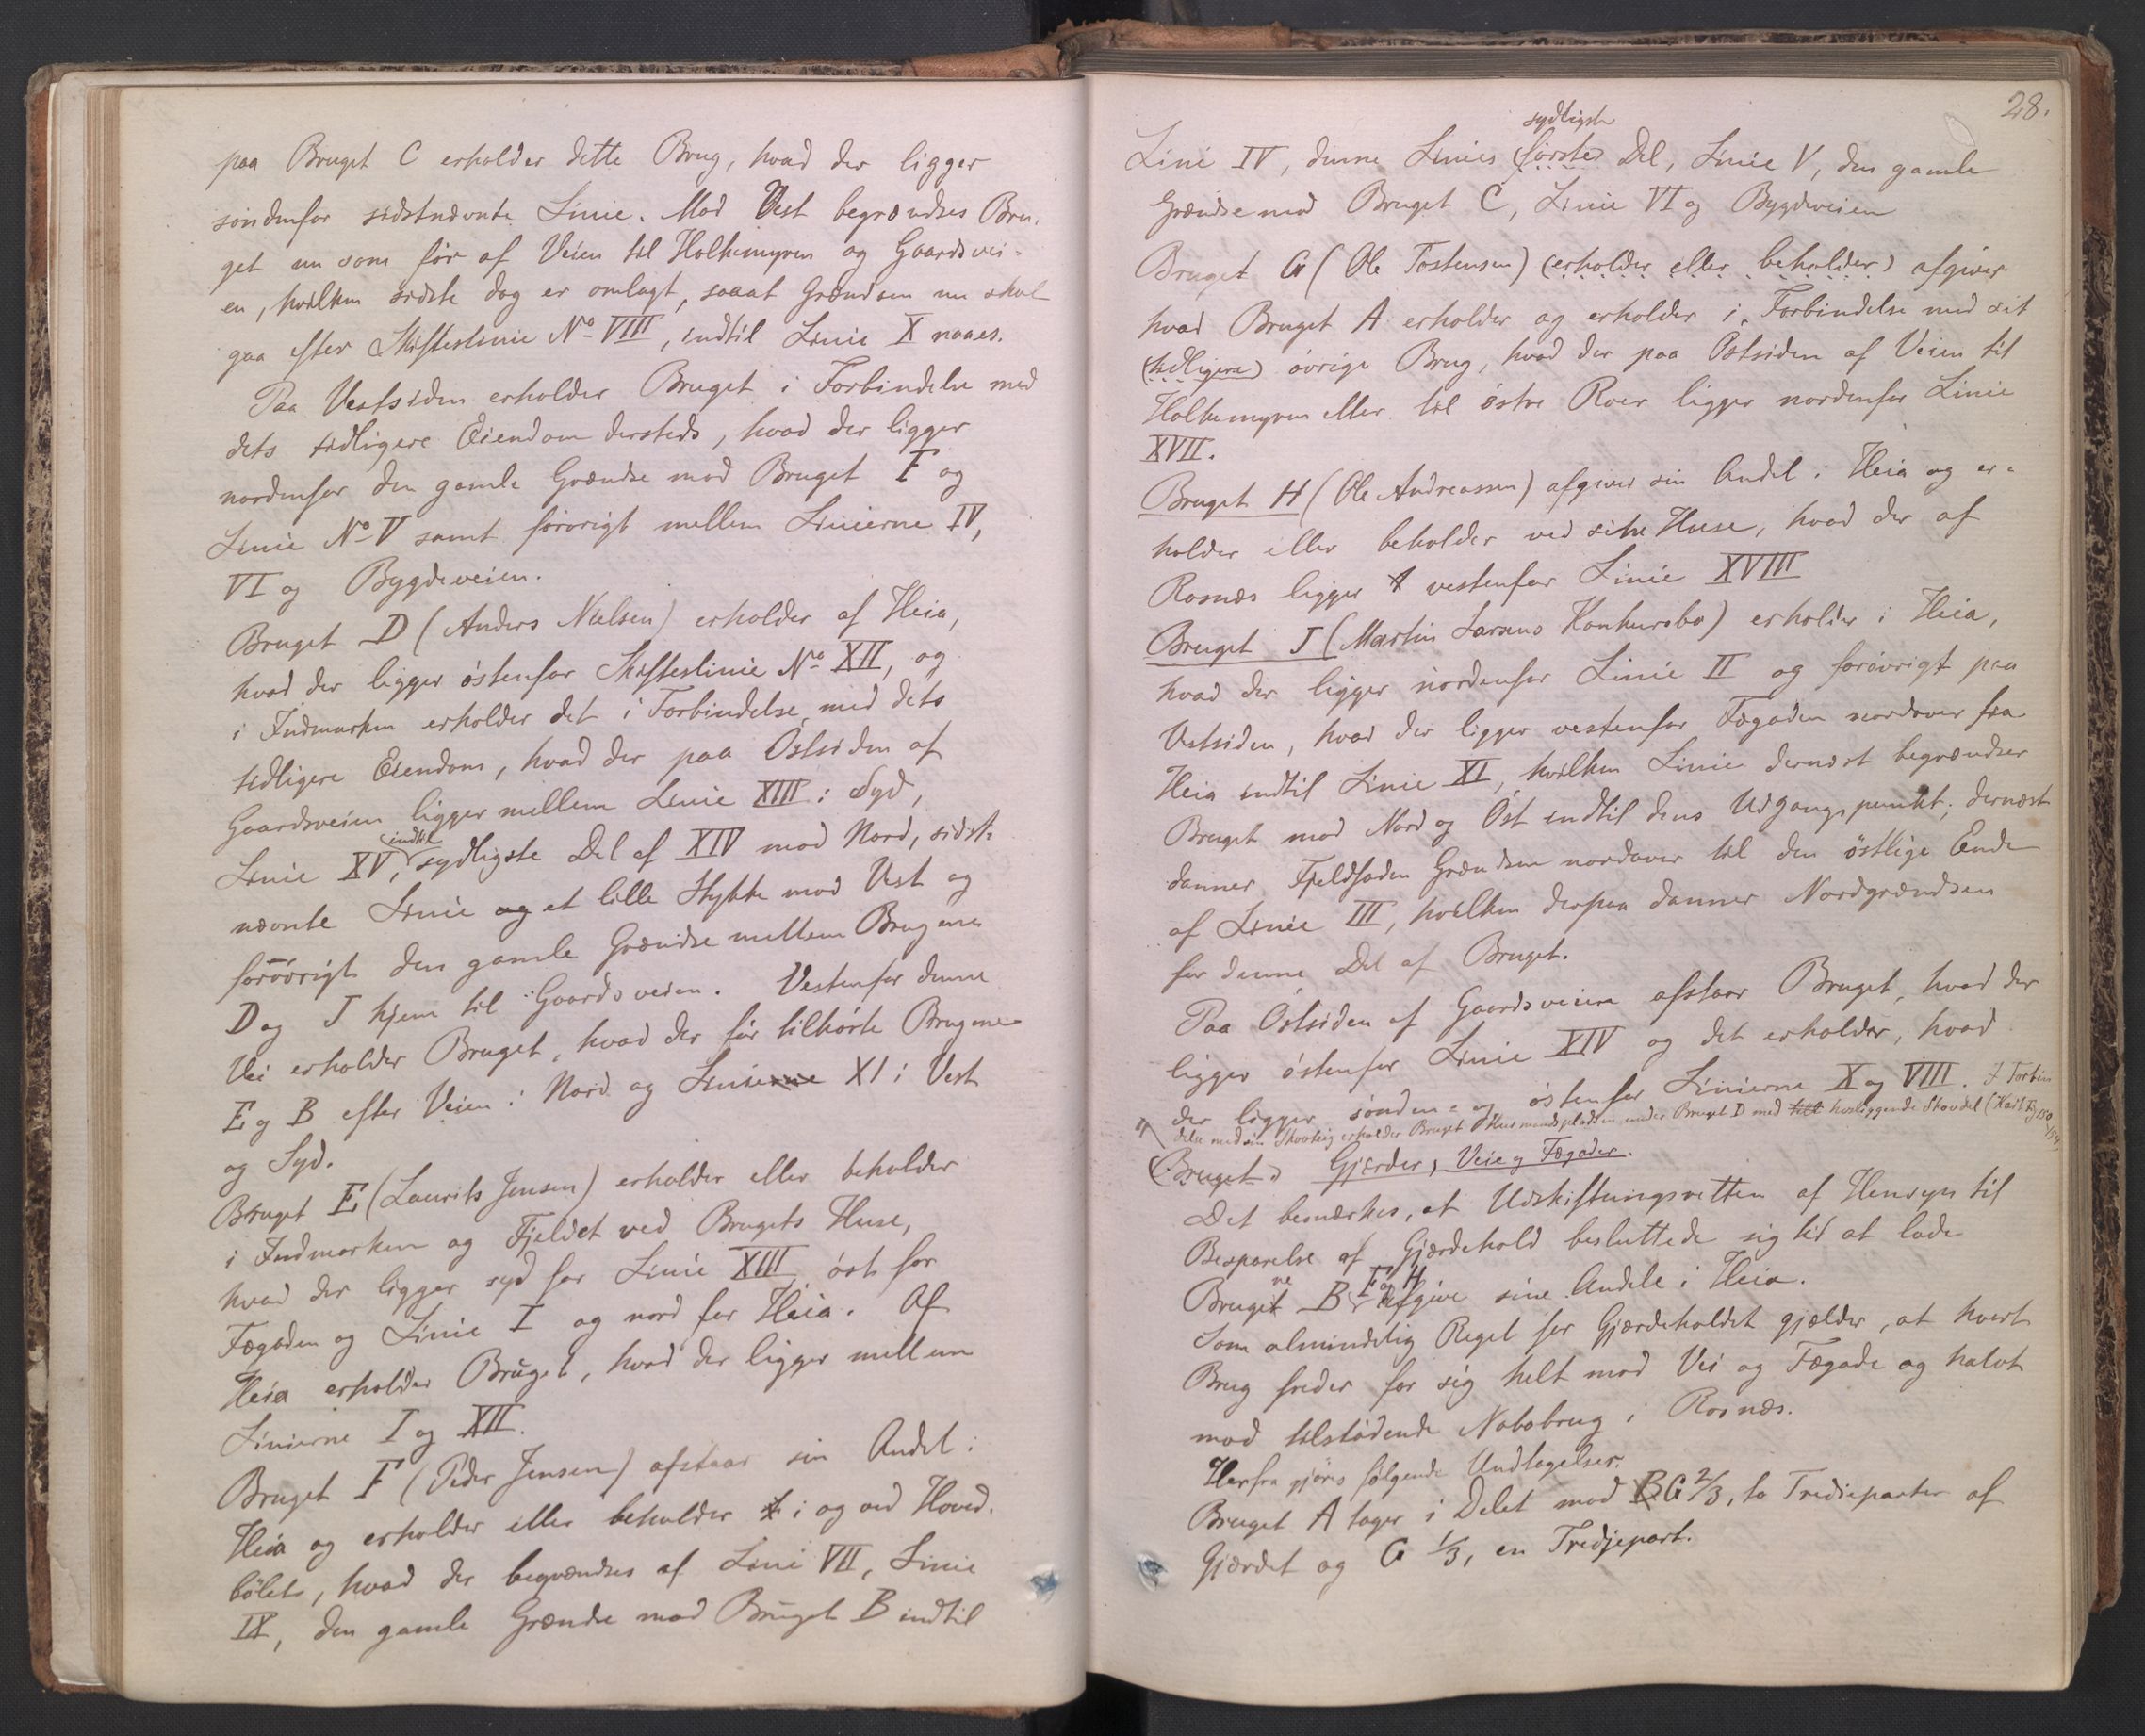 paa Bruget C erholder dette Brug, hvad der ligger
söndenfor sidstnævnte Linie. Mod Vest begrændses Bru-
get nu som för af Veien til Holkemyren og Gaardsvei-
en, hvilken sidste dog er omlagt, saaat Grændsen nu skal
gaa efter Skifteslinie No VIII, indtil Linie X naaes.
Paa Vestsiden erholder Bruget i Forbindelse med
dets tidligere Eiendom dersteds, hvad der ligger
nordenfor den gamle Grændse mod Bruget F og
Linie No V samt forövrigt mellem Linierne IV,
VI og Bygdeveien.
Bruget D (Anders Nielsen) erholder af Heia,
hvad der ligger östenfor Skifteslinie No XII, og
i Indmarken erholder det i Forbindelse med dets
tidligere Eiendom, hvad der paa Östsiden af
Gaardsveien ligger mellem Linie XIII i Syd,
Linie XV, indtil sydligste Del af XIV mod Nord, sidst-
nævnte Linie og et lille Stykke mod Vest og
forövrigt den gamle Grændse mellem Brugene
D og J hjem til Gaardsveien. Vestenfor denne
Vei erholder Bruget, hvad der för tilhörte Brugene
E og B efter Veien i Nord og Linierne XI i Vest
og Syd.
Bruget E (Laurits Jensen) erholder eller beholder
i Indmarken og Fjeldet ved Brugets Huse,
hvad der ligger syd for Linie XIII, öst for
Fægaden og Linie I og nord for Heia. Af
Heia erholder Bruget, hvad der ligger mellem
Linierne I og XII.
Bruget F (Peder Jensen) afstaar sin Andel i
Heia og erholder eller beholder i og ved Hoved-
bölet, hvad der begrændses af Linie VII, Linie
IX, den gamle Grændse mod Bruget B indtil
28.
Linie IV, denne Linies (förste) sydligste Del, Linie V, den gamle
Grændse mod Bruget C, Linie VI og Bygdeveien
Bruget G (Ole Tostensen) (erholder eller beholder) afgiver
hvad Bruget A erholder og erholder i Forbindelse med sit
(tidligere) övrige Brug, hvad der paa Östsiden af Veien til
Holkemyren eller til östre Roer ligger nordenfor Linie
XVII.
Bruget H (Ole Andreassen) afgiver sin Andel i Heia og er-
holder eller beholder ved sine Huse, hvad der af
Rosnæs ligger vestenfor Linie XVIII
Bruget J (Martin Larsens Konkursbo) erholder i Heia,
hvad der ligger nordenfor Linie II og forövrigt paa
Vestsiden, hvad der ligger vestenfor Fægaden nordover fra
Heia indtil Linie XI, hvilken Linie dernæst begrændser
Bruget mod Nord og Öst indtil dens Udgangspunkt; dernæst
danner Fjeldfoden Grændsen nordover til den östlige Ende
af Linie III, hvilken derpaa danner Nordgrændsen
for denne Del af Bruget.
Paa Östsiden af Gaardsveien afstaar Bruget, hvad der
ligger östenfor Linie XIV og det erholder, hvad
der ligger sönden- og östenfor Linierne X og VIII. I Forbin
delse med sin Skovteig erholder Bruget Husmandspladsen under Bruget D med hosliggende Skovdel
(Bruget) Gjærder, Veie og Fægader.
Det bemærkes, at Udskiftningsretten af Hensyn til
Besparelse af Gjærdehold besluttede sig til at lade
Brugene B F og H afgive sine Andele i Heia.
Som almindelig Regel for Gjærdeholdet gjælder, at hvert
Brug freder for sig helt mod Vei og Fægade og halvt
mod tilstödende Nabobrug i Rosnæs.
Herfra gjöres fölgende Undtagelser.
Bruget A tager i Delet mod G 2/3, to Tredieparter af
Gjærdet og G 1/3, en Tredjepart.